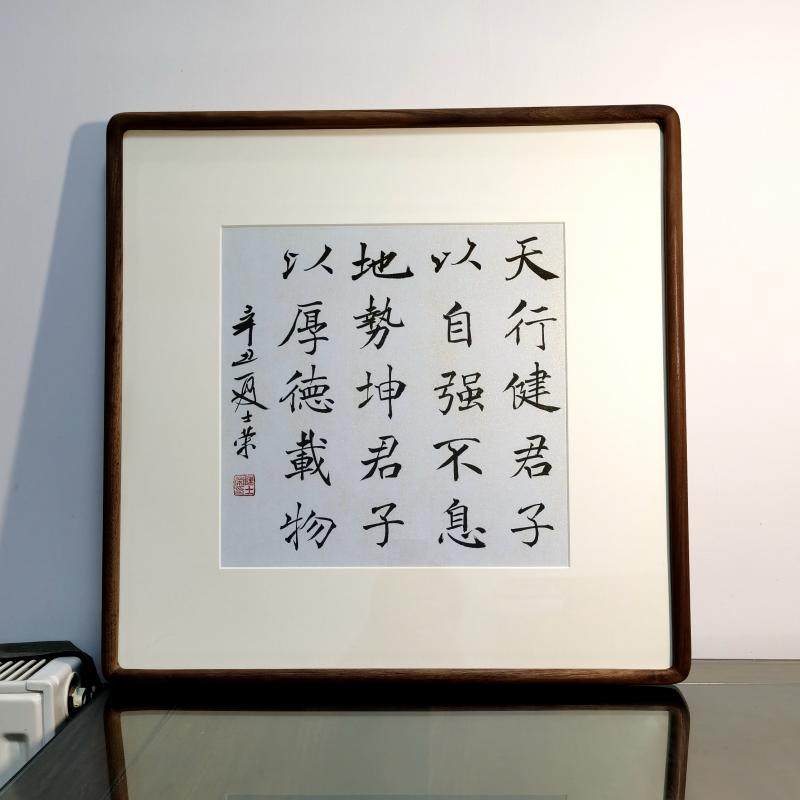 天行健君子
以自强不息
地勢坤君子
以厚德載物
辛丑夏士荣